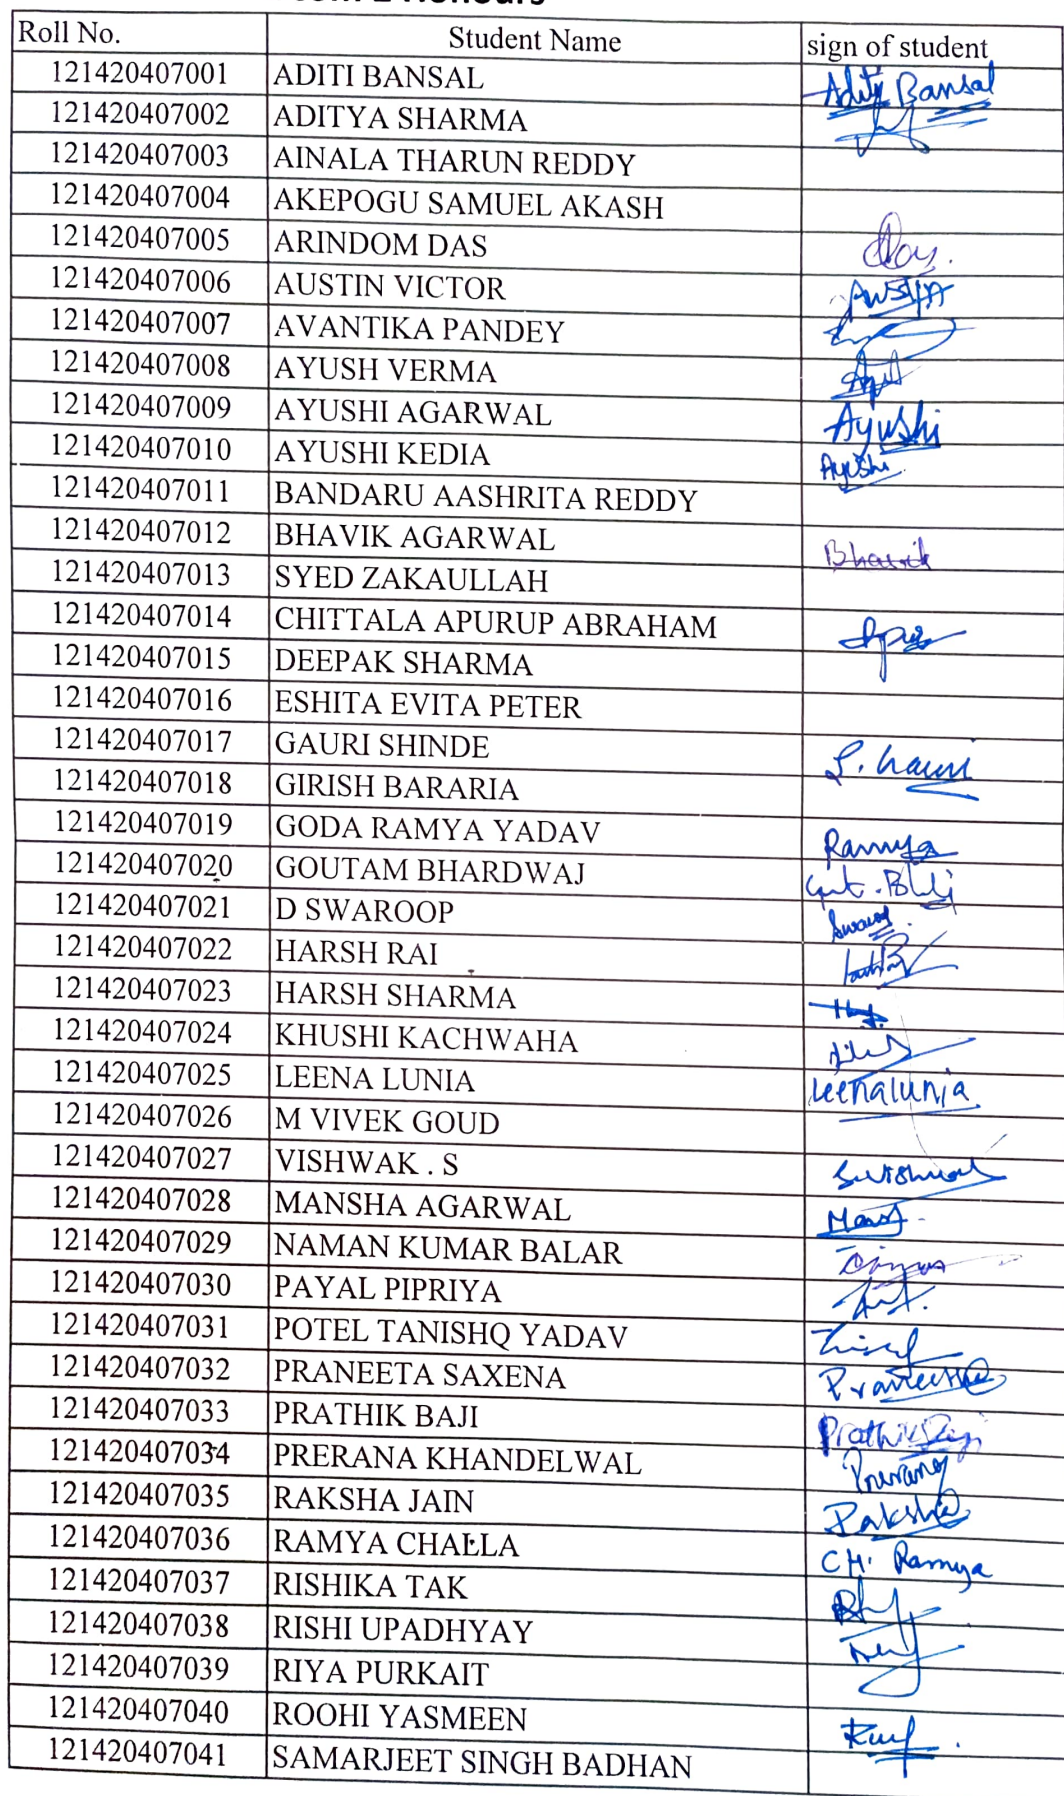 Honours
Roll No. Student Name sign of student
121420407001 ADITI BANSAL Aditi Bansal
121420407002 ADITYA SHARMA
121420407003 AINALA THARUN REDDY
121420407004 AKEPOGU SAMUEL AKASH
121420407005 ARINDOM DAS
121420407006 AUSTIN VICTOR
121420407007 AVANTIKA PANDEY
121420407008 AYUSH VERMA
121420407009 AYUSHI AGARWAL Ayushi
121420407010 AYUSHI KEDIA Ayushi
121420407011 BANDARU AASHRITA REDDY
121420407012 BHAVIK AGARWAL Bhavik
121420407013 SYED ZAKAULLAH
121420407014 CHITTALA APURUP ABRAHAM
121420407015 DEEPAK SHARMA
121420407016 ESHITA EVITA PETER
121420407017 GAURI SHINDE S. Gauri
121420407018 GIRISH BARARIA
121420407019 GODA RAMYA YADAV Ramya
121420407020 GOUTAM BHARDWAJ
121420407021 D SWAROOP
121420407022 HARSH RAI
121420407023 HARSH SHARMA
121420407024 KHUSHI KACHWAHA
121420407025 LEENA LUNIA Leenalunia
121420407026 M VIVEK GOUD
121420407027 VISHWAK . S
121420407028 MANSHA AGARWAL
121420407029 NAMAN KUMAR BALAR
121420407030 PAYAL PIPRIYA
121420407031 POTEL TANISHQ YADAV
121420407032 PRANEETA SAXENA Praneetha
121420407033 PRATHIK BAJI Prathik Baji
121420407034 PRERANA KHANDELWAL Prerana
121420407035 RAKSHA JAIN Raksha
121420407036 RAMYA CHALLA CH. Ramya
121420407037 RISHIKA TAK
121420407038 RISHI UPADHYAY
121420407039 RIYA PURKAIT
121420407040 ROOHI YASMEEN
121420407041 SAMARJEET SINGH BADHAN